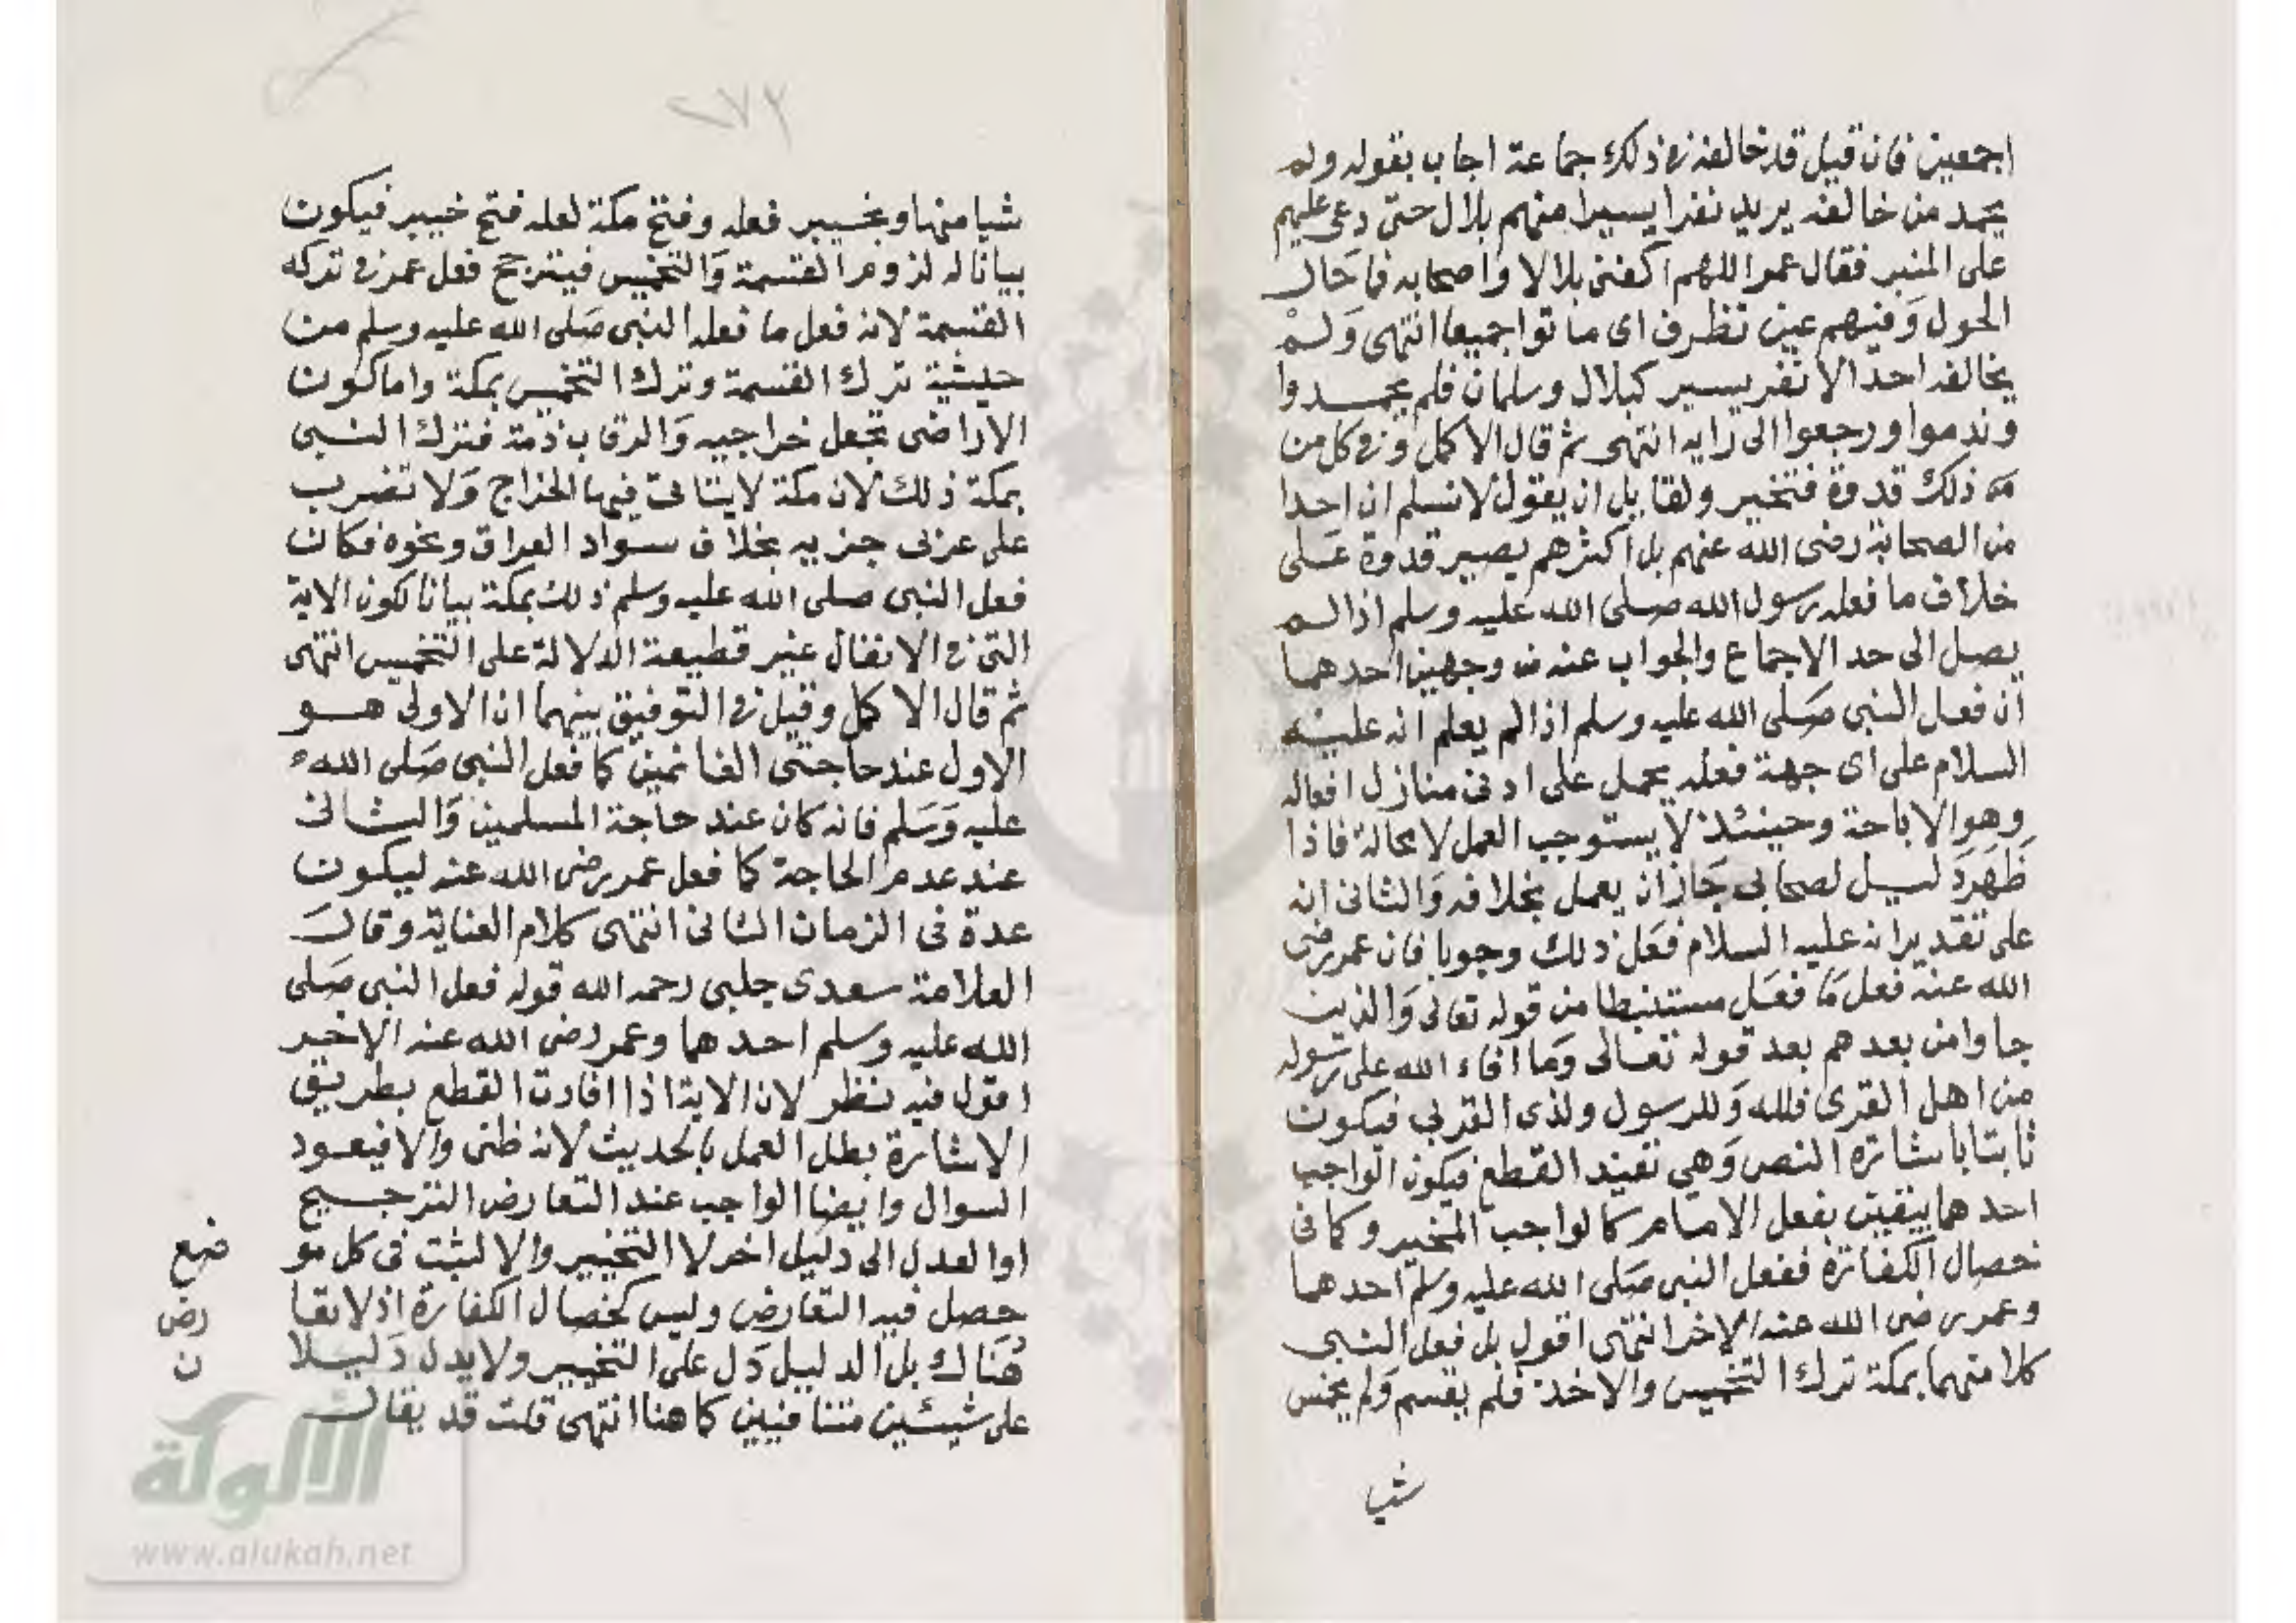 اجمعين فان قيل قد خالفه في ذلك جماعة اجاب بقوله ولم
يحمد من خالفه يريد نفرا يسيرا منهم بلال حتى دعى عليهم
على المنبر فقال عمر اللهم اكفنى بلالا واصحابه فما حال
الحول وفيهم عين تطرف اى ماتوا جميعا انتهى ولم
يخالفه احد الا نفر يسير كبلال وسلمان فلم يحمدوا
وندموا ورجعوا الى رايه انتهى ثم قال الاكمل وفي كل من
ذلك قدوة فتخير ولقايل ان يقول لا نسلم ان احدا
من الصحابة رضى الله عنهم بل اكثرهم يصير قدوة على
خلاف ما فعله رسول الله صلى الله عليه وسلم اذا لم
يصل الى حد الاجماع والجواب عنه من وجهين احدهما
ان فعل النبى صلى الله عليه وسلم اذا لم يعلم انه عليه
السلام على اى جهة فعله يحمل على ادنى منازل افعاله
وهو الاباحة وحينئذ لا يستوجب العمل لا محالة فاذا
ظهر دليل لصحابى جاز ان يعمل بخلافه والثانى انه
على تقدير انه عليه السلام فعل ذلك وجوبا فان عمر رضى
الله عنه فعل ما فعل مستنبطا من قوله تعالى والذين
جاوا من بعدهم بعد قوله تعالى وما افاء الله على رسوله
من اهل القرى فلله وللرسول ولذى القربى فيكون
ثابتا باشارة النص وهي تفيد القطع فيكون الواجب
احدهما يتعين بفعل الامام كالواجب المخير وكما فى
خصال الكفارة ففعل النبى صلى الله عليه وسلم احدهما
وعمر رضى الله عنه الاخر انتهى اقول بل فعل النبى
كلا منهما بمكة ترك التخميس والاخذ فلم يقسم ولم يخمس
شيا
٢٧٢
شيا منها وبخيبر فعله وفتح مكة لعله فتح خيبر فيكون
بيانا له لزوم القسمة والتخميس فيترجح فعل عمر في تركه
القسمة لانه فعل ما فعله النبى صلى الله عليه وسلم من
حيثية ترك القسمة وترك التخميس بمكة واما كون
الاراضى تجعل خراجيه والرقاب ذمة فترك النبى
بمكة ذلك لان مكة لا يتاتى فيها الخراج ولا تضرب
على عربى جزيه بخلاف سواد العراق ونحوه فكان
فعل النبى صلى الله عليه وسلم ذلك بمكة بيانا لكون الاية
التى في الانفال غير قطيعة الدلالة على التخميس انتهى
ثم قال الاكمل وقيل في التوفيق بينهما ان الاولى هو
الاول عند حاجتى الغانمين كما فعل النبى صلى الله
عليه وسلم فانه كان عند حاجة المسلمين والثانى
عند عدم الحاجة كما فعل عمر رضى الله عنه ليكون
عدة فى الزمان الثانى انتهى كلام العناية وقال
العلامة سعدى جلبى رحمه الله قوله فعل النبى صلى
الله عليه وسلم احدهما وعمر رضى الله عنه الاخير
اقول فيه نظر لان الاية اذا افادت القطع بطريق
الاشارة بطل العمل بالحديث لانه ظنى والا فيعود
السوال وايضا الواجب عند التعارض الترجيح
او العدل الى دليل اخر لا التخيير والا لثبت فى كل مو
ضع
حصل فيه التعارض وليس كخصال الكفارة اذ لا تعا
رض
هناك بل الدليل دل على التخيير ولا يدل دليلا
ن
على شيئين متنافيين كما هنا انتهى قلت قد يقال
الالوكة
www.alukah.net